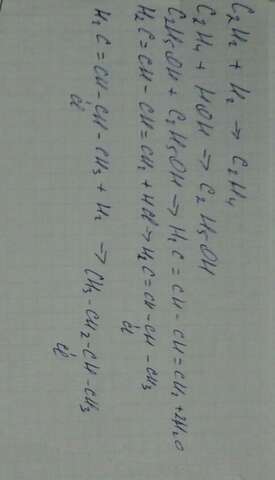 C2H2 + H2 → C2H4
C2H4 + HOH → C2H5OH
C2H5OH + C2H5OH → H2C = CH - CH = CH2 + 2H2O
H2C = CH - CH = CH2 + HCl → H2C = CH - CH - CH3
Cl
H2C = CH - CH - CH3 + H2 → CH3 - CH2 - CH - CH3
Cl Cl